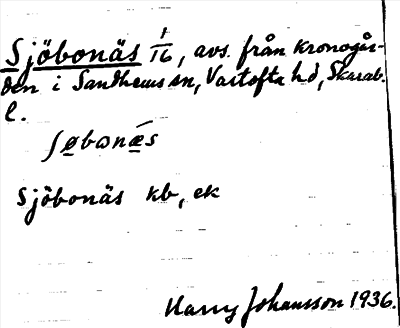 Sjöbonäs 1/16, avs. från kronogår-
den i Sandhems sn, Vartofta hd, Skarab.
l.
ʃø̱bωnǽ̱s
Sjöbonäs kb, ek
Harry Johansson 1936.